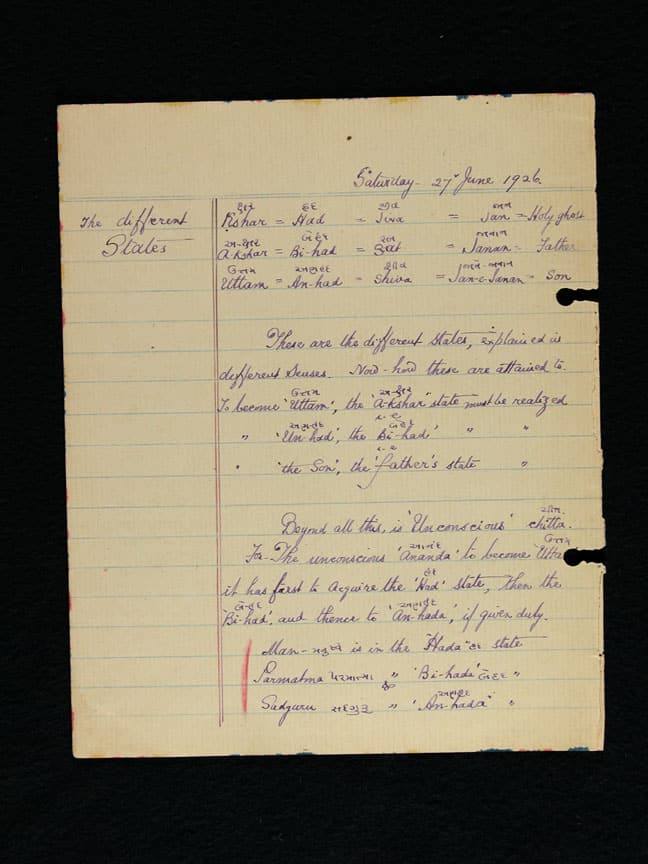 Saturday - 27th June 1926.
The different
States
ક્ષર હદ જીવ જાન
Kshar = Had = Jiva = Jan = Holy ghost
અ-ક્ષર બેહદ
A-Kshar = Bi-had = = Janan = Father
ઉત્તમ અનહદ શીવ
Uttam = An-had = Shiva = Jan-e-Janan = Son
These are the different States, explained in
different senses. Now - how these are attained to.
ઉત્તમ અ-ક્ષર
To become 'Uttam', the 'A-Kshar' state must be realized
i-e
અનહદ બેહદ
" 'Un-had', the 'Bi-had' " "
i-e
" 'the Son', the 'father's state "
Beyond all this, is 'Unconscious' chitta.
આનંદ ઉત્તમ
For - The unconscious 'Ananda' to become 'Utta
હદ
it has first to acquire the 'Had' state, then the
બેહદ અનહદ
'Bi-had', and thence to 'An-hada', if given duty.
Man - મનુષ્ય is in the "Hada" હદ state
Parmatma પરમાત્મા " 'Bi-hada' બેહદ "
અનહદ
Sadguru સદગુરુ " 'An-hada' "